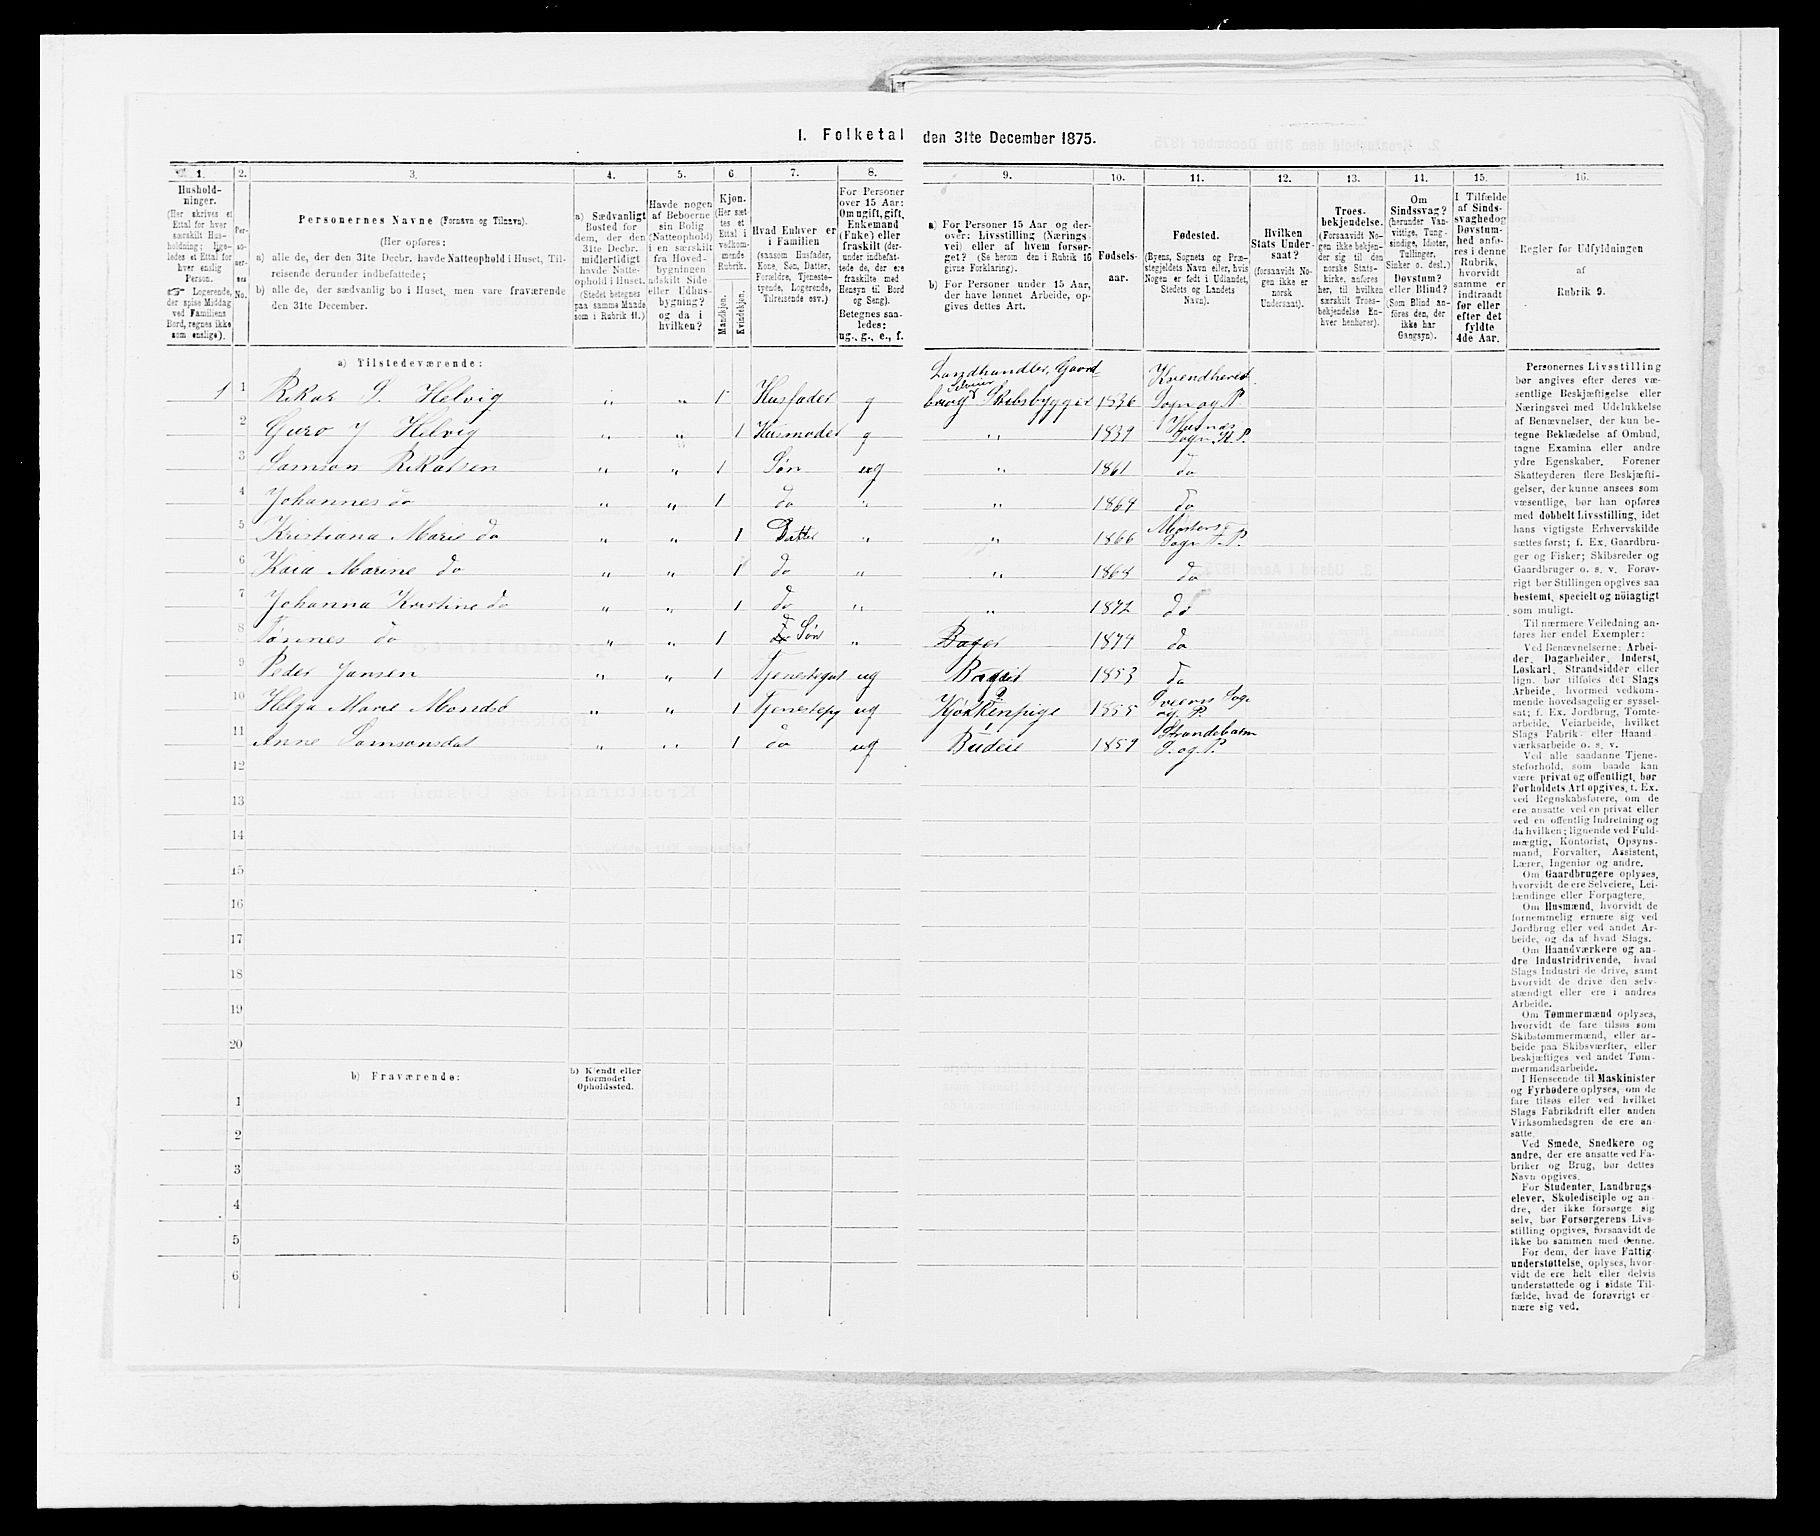 I. Folketal den 31te December 1875.
1. 2. 3. 4. 5. 6 7. 8. 9. 10. 11. 12. 13. 14. 15. 16.
Hushold-
ninger.
(Her skrives et
Ettal for hver
særskilt Hus-
holdning; lige-
ledes et Ettal for
hver enslig
Person.
☞ Logerende,
der spise Middag
ved Familiens
Bord, regnes ikke
som enslige).
Personernes Navne (Fornavn og Tilnavn).
(Her opføres:
a) alle de, der den 31te Decbr. havde Natteophold i Huset, Til-
reisende derunder indbefattede;
b) alle de, der sædvanlig bo i Huset, men vare fraværende
den 31te December.
a) Sædvanligt
Bosted for
dem, der den
31te Decbr.
midlertidigt
havde Natte-
ophold i Huset.
(Stedet betegnes
paa samme Maade
som i Rubrik 11.)
Havde nogen
af Beboerne
sin Bolig
(Natteophold)
i en særskilt
fra Hoved-
bygningen
adskilt Side
eller Udhus-
bygning?
og da i
hvilken?
Kjøn.
(Her sæt
tes et
Ettal i
vedkom-
mende
Rubrik.
Mandkjøn.
Kvindekjøn.
Hvad Enhver er
i Familien
(saasom Husfader,
Kone, Søn, Datter,
Forældre, Tjeneste-
tyende, Logerende,
Tilreisende osv.)
For Personer
over 15 Aar:
Om ugift, gift,
Enkemand
(Enke) eller
fraskilt (der-
under indbefat-
tede de, der ere
fraskilte med
Hensyn til Bord
og Seng).
Betegnes saa-
ledes:
ug., g., e., f.
a) For Personer 15 Aar og der-
over: Livsstilling (Nærings
vei) eller af hvem forsør-
get? (Se herom den i Rubrik 16
givne Forklaring).
b) For Personer under 15 Aar,
der have lønnet Arbeide, op-
gives dettes Art.
Fødsels-
aar.
Fødested.
(Byens, Sognets og Præ-
stegjeldets Navn eller, hvis
Nogen er født i Udlandet,
Stedets og Landets
Navn).
Hvilken
Stats Under-
saat?
(forsaavidt No-
gen ikke er
norsk
Undersaat).
Troes-
bekjendelse.
(Forsaavidt No-
gen ikke bekjen-
der sig til den
norske Stats-
kirke, anføres
her, til hvilken
særskilt Troes-
bekjendelse En-
hver henhører).
Om
Sindssvag?
(herunder Van-
vittige, Tung-
sindige, Idioter,
Tullinger,
Sinker o. desl.)
Døvstum?
eller Blind?
(Som Blind an-
føres den, der
ikke har
Gangsyn).
I Tilfælde
af Sinds-
svaghed og
Døvstum-
hed anfø-
res i denne
Rubrik,
hvorvidt
samme er
indtraadt
før eller
efter det
fyldte
4de Aar.
Regler før Udfyldningen
af
Rubrik 9.
a) Tilstedeværende:
1 1 Rikar S. Helvig " " 1 Husfader g Landhandler, Gaard-
brug Selveier Skibsbygger 1836 Kvendhered Sogn og P
2 Guro J Helvig " " 1 Husmoder g " 1839 Husnæs Sogn K. P.
3 Samson Rikalsen " " 1 Søn ug " 1861 do
4 Johannes do " " 1 do " 1864 do
5 Kristiana Marie do " " 1 Datter " " 1866 Sogn P.
6 Kara Marine do " " 1 do " " 1868 do
7 Johanna Kristine do " " 1 do " " 1872 do
8 Tønnes do " " 1 Søn " 1874 do
9 Peder Jansen " " 1 Tjenestegut ug 1853 do
10 Helga Marie " " 1 Tjenestepg ug Kjøkkenpige 1855 Sogn og P.
11 Anne Samsonsdat " " 1 do ug Budeie 1859 Strandebarm S. og P.
12
13
14
15
16
17
18
19
20
b) Fraværende:
b) Kjendt eller
formodet
Opholdssted.
1
2
3
4
5
6
Personernes Livsstilling
bør angives efter deres væ-
sentlige Beskjæftigelse eller
Næringsvei med Udelukkelse
af Benævnelser, der kun be-
tegne Beklædelse af Ombud,
tagne Examina eller andre
ydre Egenskaber. Forener
Skatteyderen flere Beskjæfti-
gelser, der kunne ansees som
væsentlige, bør han opføres
med dobbelt Livsstilling, idet
hans vigtigste Erhvervskilde
sættes først; f. Ex. Gaardbru-
ger og Fisker; Skibsreder og
Gaardbruger o. s. v. Forøv-
rigt bør Stillingen opgives saa
bestemt, specielt og nøiagtigt
som muligt.
Til nærmere Veiledning an-
føres her endel Exempler:
Ved Benævnelserne: Arbei-
der, Dagarbeider, Inderst,
Løskarl, Strandsidder eller
lign. bør tilføies det Slags
Arbeide, hvormed vedkom-
mende hovedsagelig er syssel-
sat; f. Ex. Jordbrug, Tomte-
arbeide, Veiarbeide, hvilket
Slags Fabrik- eller Haand-
værksarbeide o. s. v.
Ved alle saadanne Tjene-
steforhold, som baade kan
være privat og offentligt, bør
Forholdets Art opgives, t. Ex.
ved Regnskabsførere, om de
ere ansatte ved en privat eller
ved en offentlig Indretning og
da hvilken; lignende ved Fuld-
mægtig, Kontorist, Opsyns-
mand, Forvalter, Assistent,
Lærer, Ingeniør og andre.
Om Gaardbrugere oplyses,
hvorvidt de ere Selveiere, Lei-
lændinge eller Forpagtere.
Om Husmænd, hvorvidt de
fornemmelig ernære sig ved
Jordbrug eller ved andet Ar-
beide, og da af hvad Slags.
Om Haandværkere og an-
dre Industridrivende, hvad
Slags Industri de drive, samt
hvorvidt de drive den selv-
stændigt eller ere i andres
Arbeide.
Om Tømmermænd oplyses,
hvorvidt de fare tilsøs som
Skibstømmermænd, eller ar-
beide paa Skibsværfter, eller
beskjæftiges ved andet Tøm-
mermandsarbeide.
I Henseende til Maskinister
og Fyrbødere oplyses, om de
fare tilsøs eller ved hvilket
Slags Fabrikdrift eller anden
Virksomhedsgren de ere an-
satte.
Ved Smede, Snedkere og
andre, der ere ansatte ved Fa-
briker og Brug, bør dettes
Navn opgives.
For Studenter, Landbrugs-
elever, Skoledisciple og an-
dre, der ikke forsørge sig
selv, bør Forsørgerens Livs-
stilling opgives, forsaavidt de
ikke bo sammen med denne.
For dem, der have Fattig-
understøttelse, oplyses, hvor-
vidt de ere helt eller delvis
understøttede og i sidste Til-
fælde, hvad de forøvrigt er-
nære sig ved.